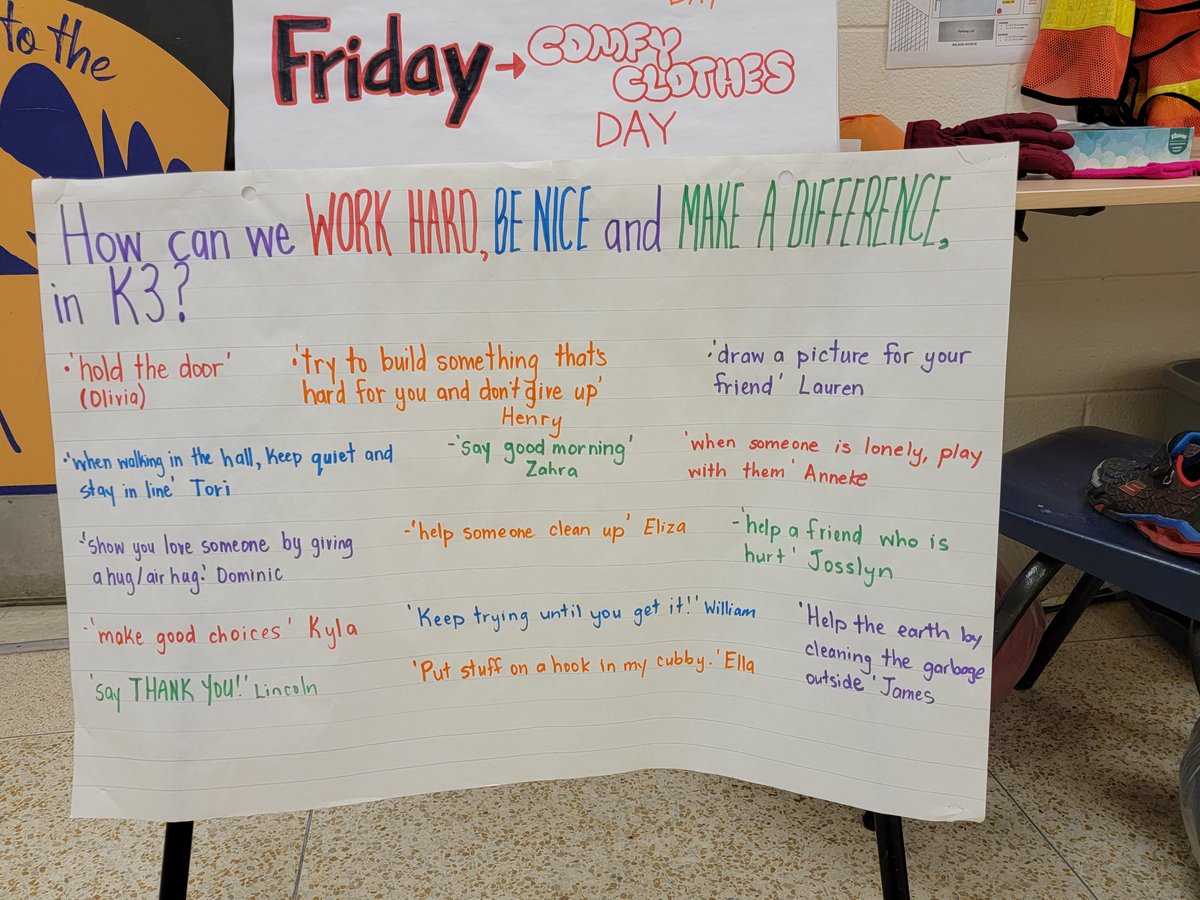 to the
DAY
Friday → COMFY
CLOTHES
DAY
How can we WORK HARD, BE NICE and MAKE A DIFFERENCE,
in K3?
·'hold the door'
(Olivia)
·'try to build something that's
hard for you and don't give up'
Henry
·'draw a picture for your
friend' Lauren
·'when walking in the hall, keep quiet and
stay in line' Tori
-'say good morning'
Zahra
'when someone is lonely, play
with them' Anneke
-'show you love someone by giving
a hug/air hug.' Dominic
-'help someone clean up' Eliza
-'help a friend who is
hurt' Josslyn
·'make good choices' Kyla
'Keep trying until you get it!' William
'Help the earth by
cleaning the garbage
outside' James
'say THANK YOU!' Lincoln
'Put stuff on a hook in my cubby.' Ella